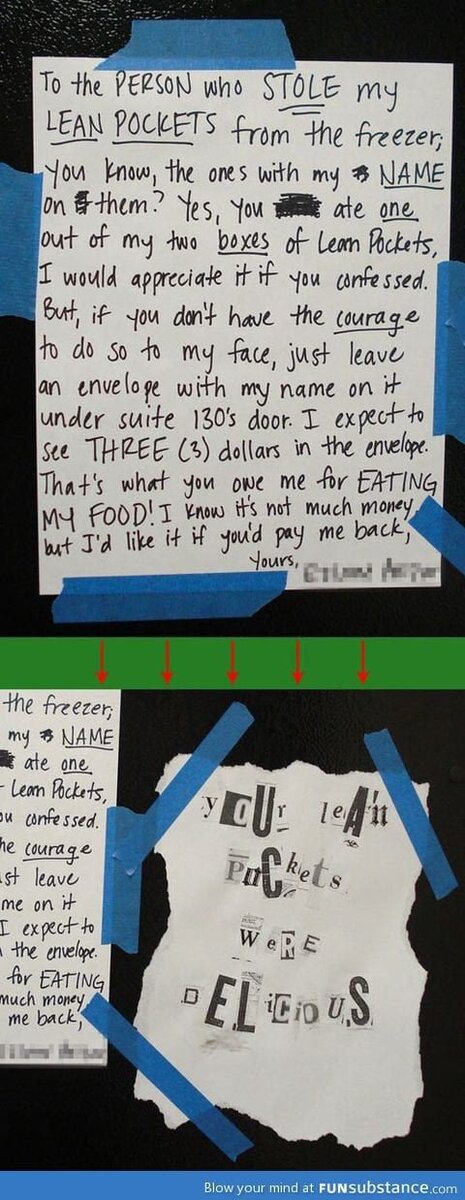 To the PERSON who STOLE my
LEAN POCKETS from the freezer,
you know, the ones with my NAME
on them? Yes, you ate one
out of my two boxes of Lean Pockets,
I would appreciate it if you confessed.
But, if you don't have the courage
to do so to my face, just leave
an envelope with my name on it
under suite 130's door. I expect to
see THREE (3) dollars in the envelope.
That's what you owe me for EATING
MY FOOD! I know it's not much money,
but I'd like it if you'd pay me back,
Yours,
the freezer,
my NAME
ate one
Lean Pockets,
ou confessed.
he courage
st leave
me on it
I expect to
the envelope.
for EATING
much money,
me back,
yOUr leAn
PoCkets
WeRE
DELiCioUS
Blow your mind at FUNsubstance.com